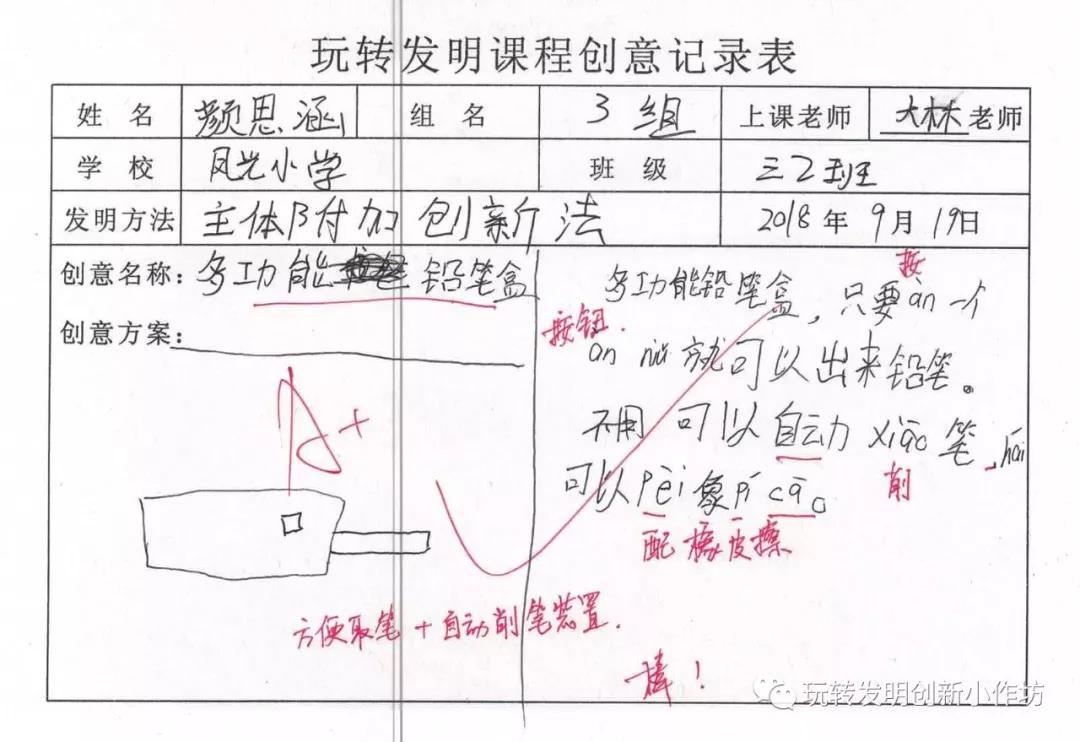 玩转发明课程创意记录表
姓 名 颜思涵 组 名 3 组 上课老师 大林老师
学 校 凤光小学 班 级 三2班
发明方法 主体附加创新法 2018年9月19日
创意名称：多功能 铅笔盒
创意方案：
多功能铅笔盒，只要àn一个
àn niǔ就可以出来铅笔。
不用 可以自动xiāo笔，hái
可以pèi象pí cā。
按
按钮.
削
配 橡皮擦
A+
方便取笔+自动削笔装置.
棒！
玩转发明创新小作坊